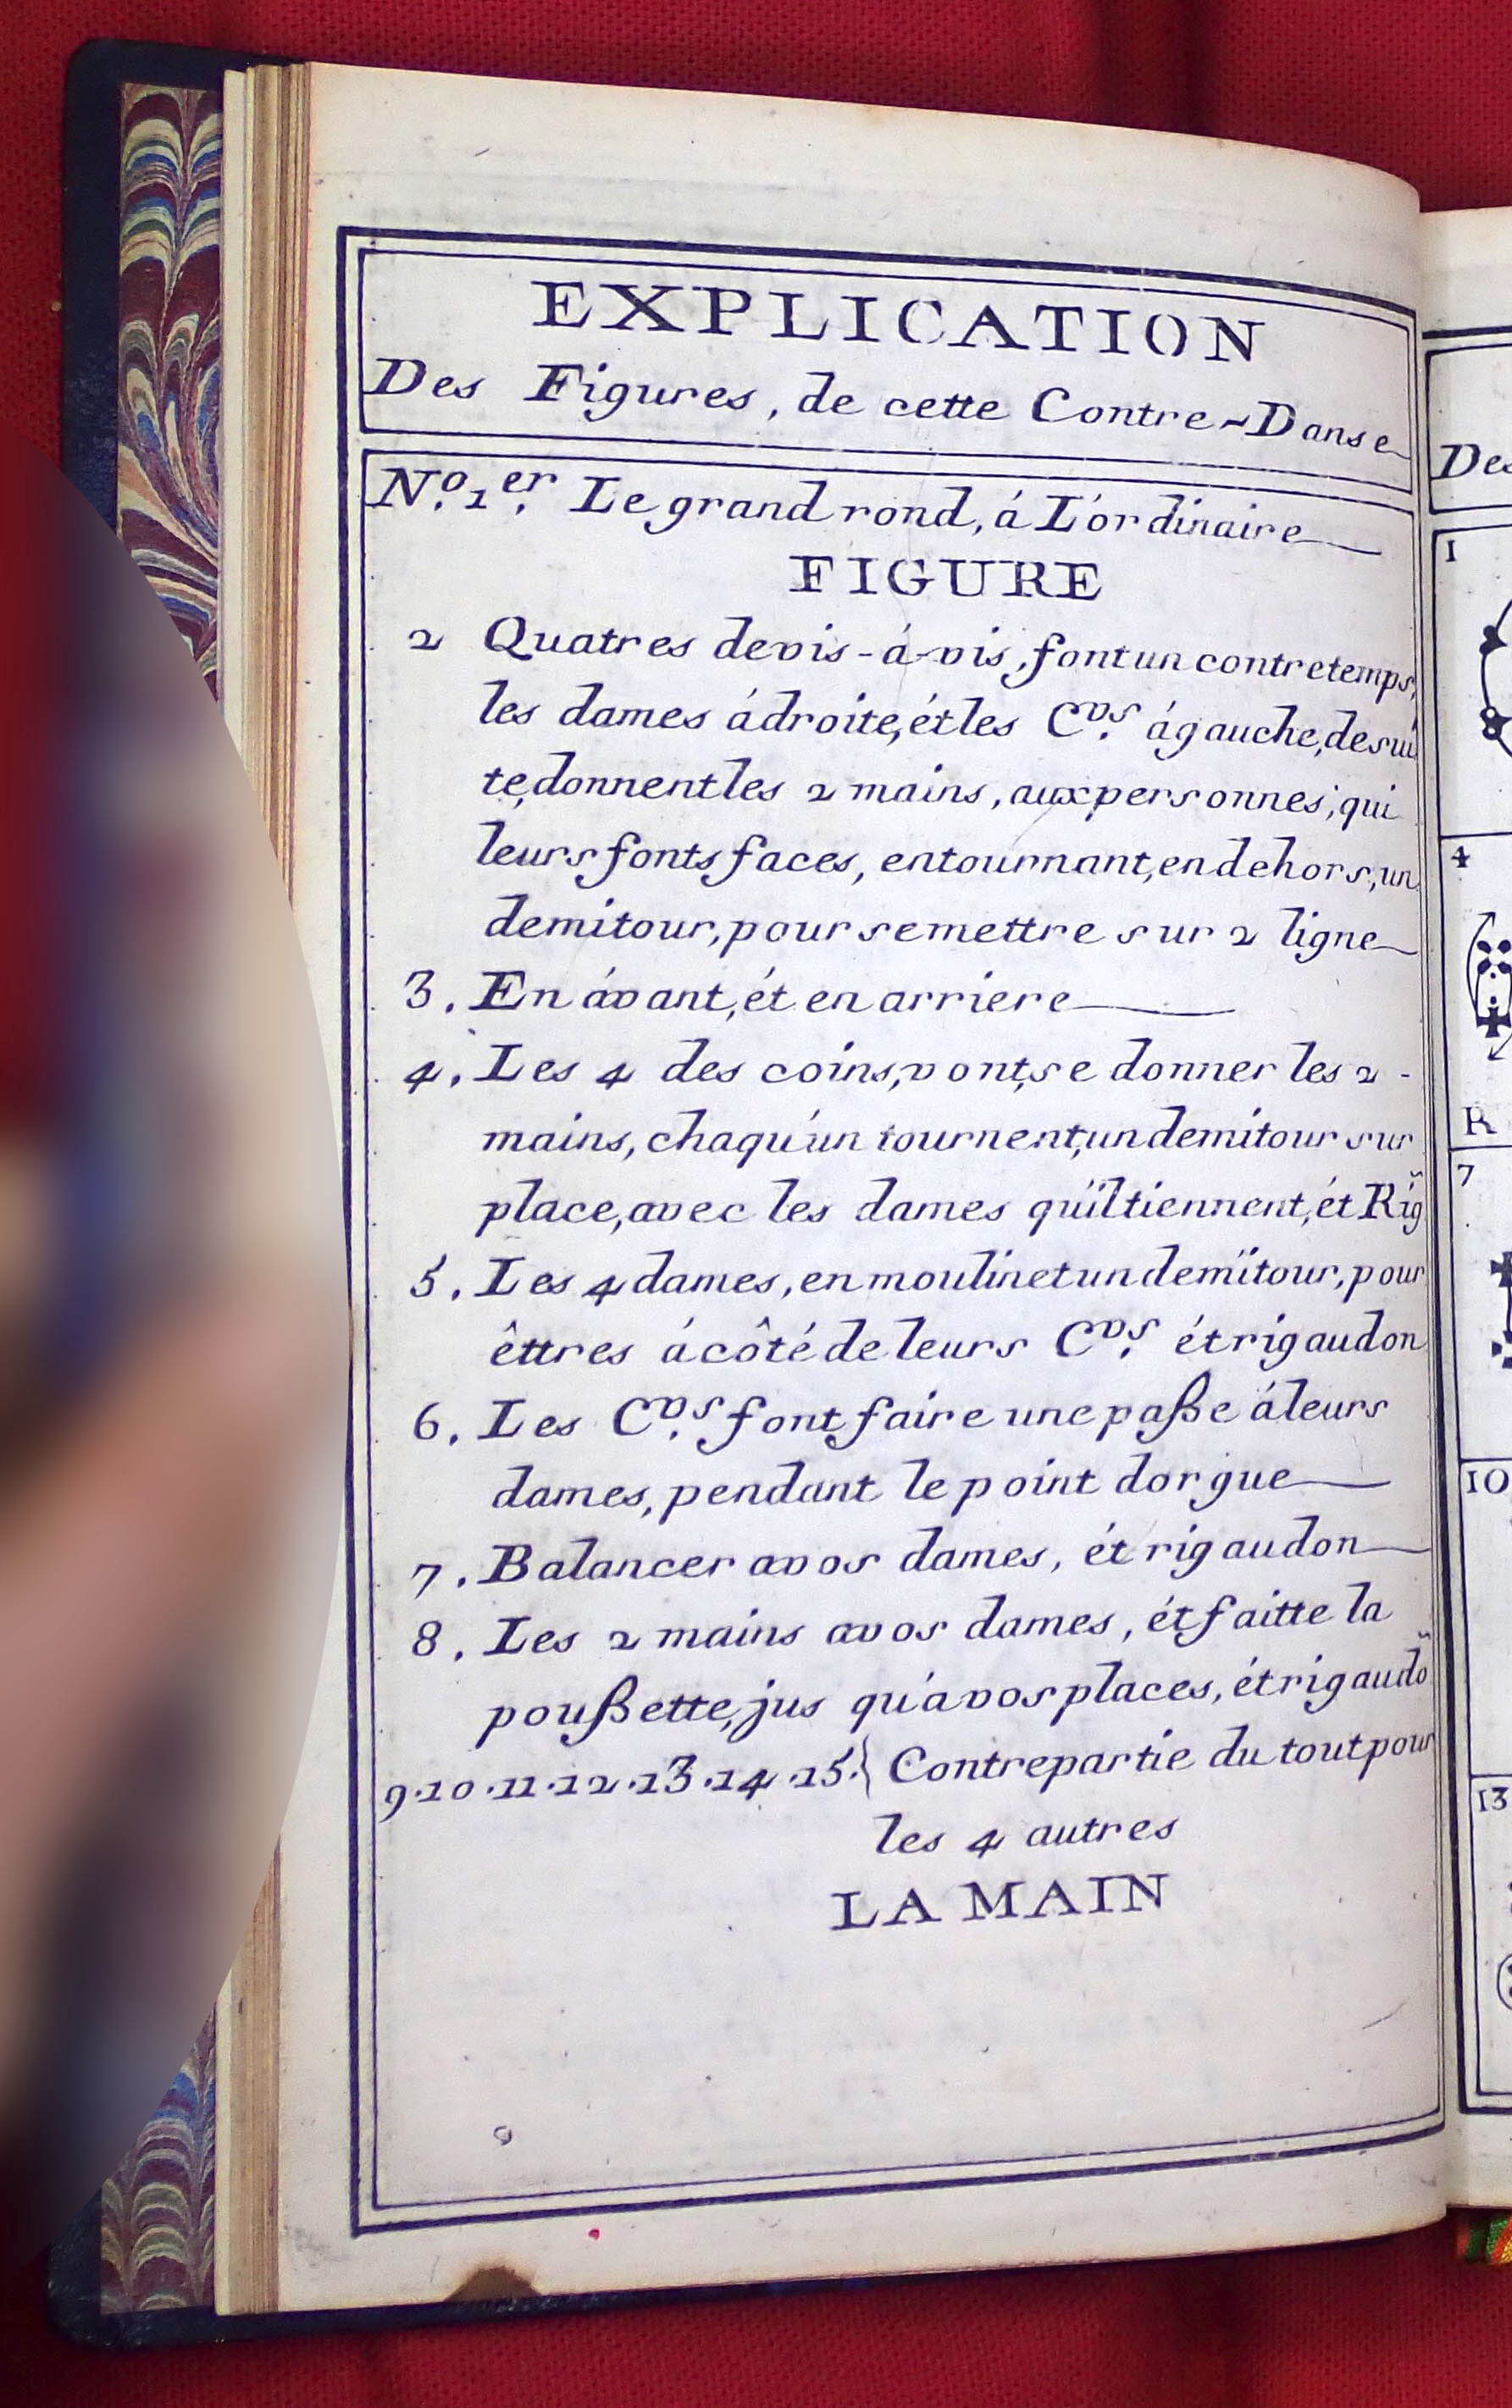 EXPLICATION
Des Figures, de cette Contre-Danse
N.º 1.er Le grand rond, á L'órdinaire
FIGURE
2 Quatres devis-á-vis, font un contretemps,
les dames ádroite, ét les C.vs ágauche, de sui
te, donnent les 2 mains, aux personnes, qui
leurs fonts faces, entournant, en dehors, un
demitour, pour se mettre sur 2 ligne
3. En ávant, ét en arriere
4. Les 4 des coins, vont, se donner les 2 -
mains, chaqu'un tournent, un demitour sur
place, avec les dames qu'iltiennent, ét Rig̃
5. Les 4 dames, en moulinet un demïtour, pour
êttres ácôté de leurs C.vs ét rigaudon
6. Les C.vs font faire une paße áleurs
dames, pendant le point dorgue
7. Balancer avos dames, ét rigaudon
8. Les 2 mains avos dames, ét faitte la
poußette, jus qu'avos places, ét rigaudõ
9.10.11.12.13.14.15.} Contrepartie du tout pour
les 4 autres
LA MAIN
De
1
4
R
7
10
13